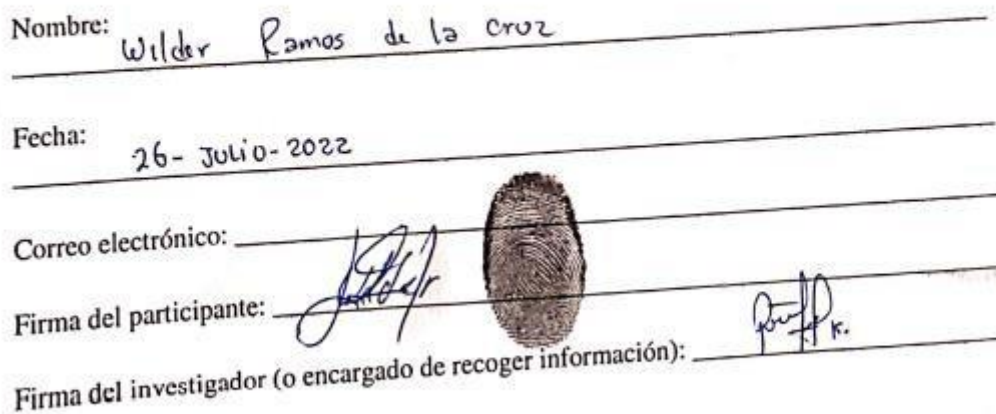 Nombre: Wilder Ramos de la Cruz
Fecha: 26-Julio-2022
Correo electrónico:
Firma del participante:
Firma del investigador (o encargado de recoger información): K.